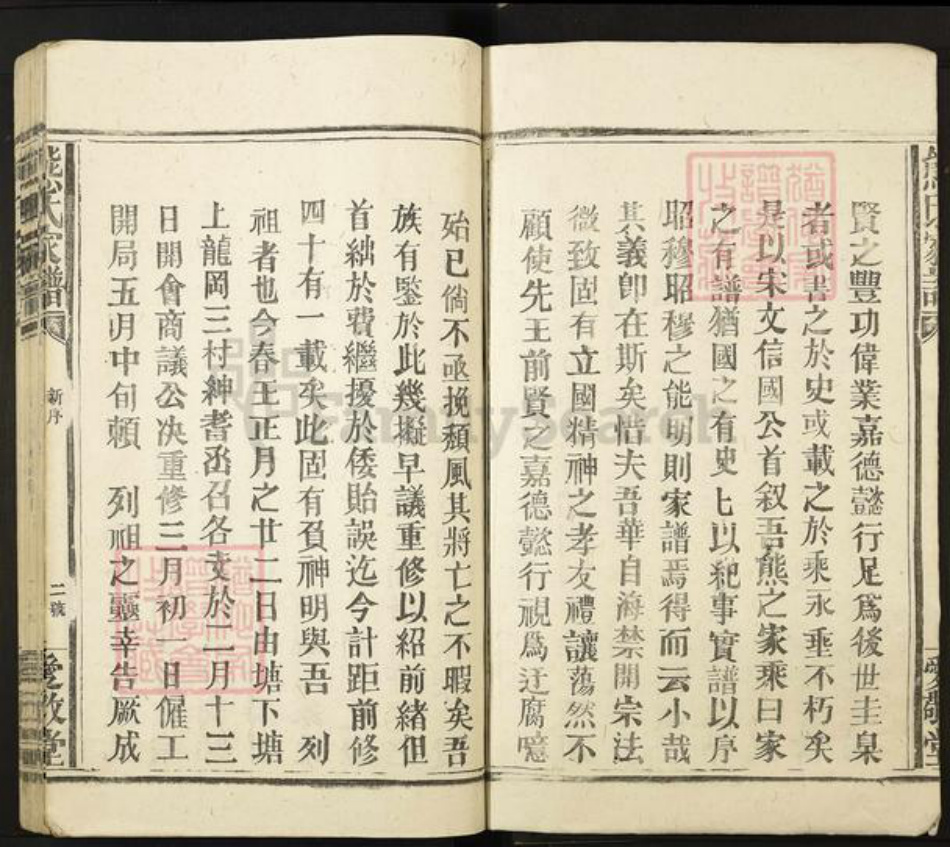 賢之豐功偉業嘉德懿行足爲後世圭臬
者或書之於史或載之於乘永垂不朽矣
是以宋文信國公首叙吾熊之家乘曰家
之有譜猶國之有史匕以紀事實譜以序
昭穆昭穆之能明則家譜焉得而云小哉
其義卽在斯矣惜夫吾華自海禁開宗法
微致固有立國精神之孝友禮讓蕩然不
顧使先王前賢之嘉德懿行視爲迂腐噫
殆已倘不亟挽頹風其將亡之不暇矣吾
族有鑒於此幾擬早議重修以紹前緒但
首絀於費繼擾於倭貽誤迄今計距前修
四十有一載矣此固有負神明與吾 列
祖者也今春王正月之廿二日由塘下塘
上龍岡三村紳耆函召各支於二月十三
日開會商議公决重修三月初一日僱工
開局五月中旬賴 列祖之靈幸告厥成
熊氏家譜
新序
二號
愛敬堂
FamilySearch